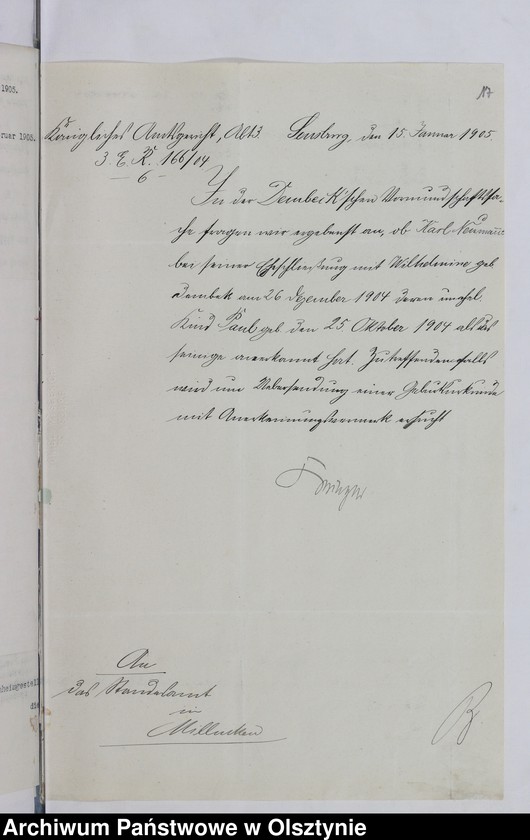 1905.
ruar 1905.
17
Königliches Amtsgericht, Abt 3. Sensburg, den 15. Januar 1905.
3. E. K. 166/04
6
In der Dembeck'schen Vormundschaftssa-
che fragen wir ergebenst an, ob Karl Neumann
bei seiner Eheschließung mit Wilhelmine geb
Dembek am 26 Dezember 1904 deren unehel.
Kind Paul geb. den 25 Oktober 1904 als das
seinige anerkannt hat. Zutreffendenfalls
wird um Uebersendung einer Geburtsurkunde
mit Anerkennungsvermerk ersucht
An
das Standesamt
in
B
Archiwum Państwowe w Olsztynie